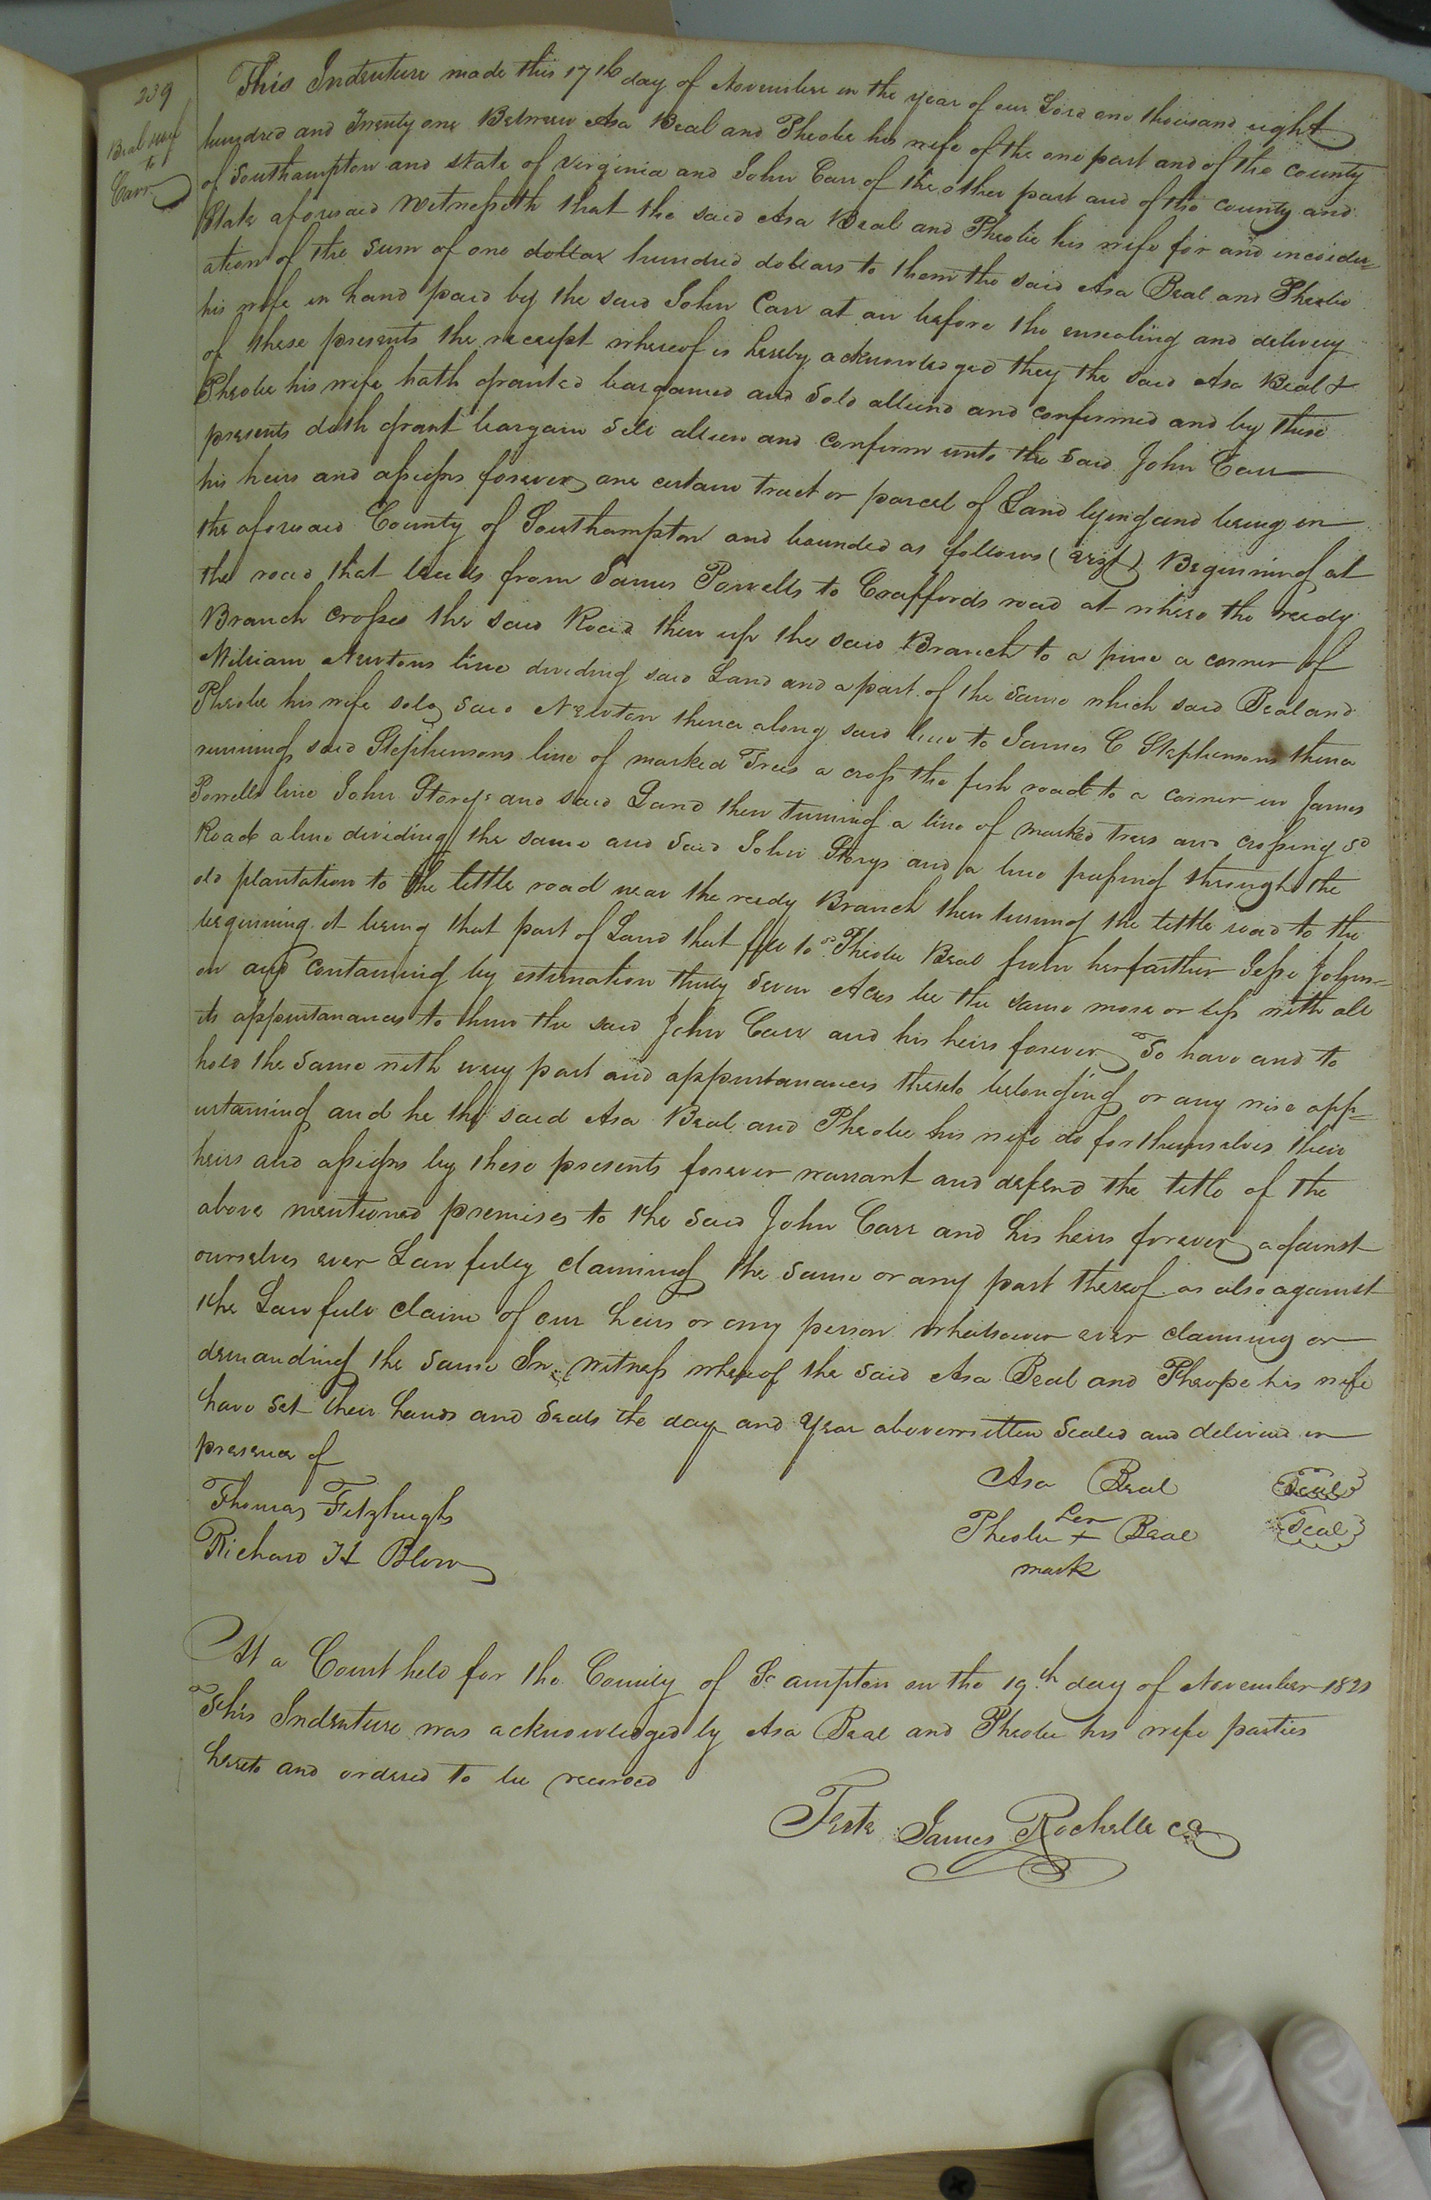 239
Beal &
to
Carr
This Indenture made this 17th day of November in the year of our Lord one thousand eight
hundred and Twenty one Between Asa Beal and Pheobe his wife of the one part and of the county
of Southampton and state of Virginia and John Carr of the other part and of the county and
State aforesaid Witnesseth that the said Asa Beal and Pheobe his wife for and inconsider=
ation of the sum of one dollar hundred dollars to them the said Asa Beal and Pheobe
his wife in hand paid by the said John Carr at or before the ensealing and delivery
of these presents the receipt whereof is hereby acknowledged they the said Asa Beal &
Pheobe his wife hath granted bargained and sold aliend and confirmed and by these
presents doth grant bargain sell alien and confirm unto the said John Carr
his heirs and assigns forever one certain tract or parcel of Land lying and being in
the aforesaid County of Southampton and bounded as follows (vizt) Beginning at
the road that leads from James Powells to Craffords road at where the reedy
Branch crosses the said Road then up the said Branch to a pine a corner of
William Newtons line dividing said Land and a part of the same which said Beal and
Pheobe his wife sold said Newton thence along said line to James C Stephensons thence
running said Stephensons line of marked Trees a cross the fish road to a corner in James
Powells line John Storys and said Land then turning a line of marked trees and crossing sd
Road a line dividing the same and said John Storys and a line passing through the
old plantation to the little road near the reedy Branch then turning the little road to the
beginning it being that part of Land that fell to sd Pheobe Beal from her farther Jesse Johns=
on and containing by estimation thirty seven Acres be the same more or less with all
its appurtanances to him the said John Carr and his heirs forever To have and to
hold the same with every part and appurtanances thereto belonging or any wise app=
ertaining and he the said Asa Beal and Pheobe his wife do for themselves their
heirs and assigns by these presents forever warrant and defend the title of the
above mentioned premises to the said John Carr and his heirs forever against
ourselves ever Lawfully claiming the same or any part thereof as also against
the Lawfull claim of our heirs or any person whatsoever ever claiming or
demanding the same In Witness whereof the said Asa Beal and Pheope his wife
have set their hands and seals the day and year abovewritten Sealed and delivered in
presence of
Thomas Fitzhugh
Richard H Blow
Asa Beal Seal
her
Pheobe + Beal Seal
mark
At a Court held for the County of So ampton on the 19th day of November 1821
This Indenture was acknowledged by Asa Beal and Pheobe his wife parties
hereto and ordered to be recorded
Teste James Rochelle cc